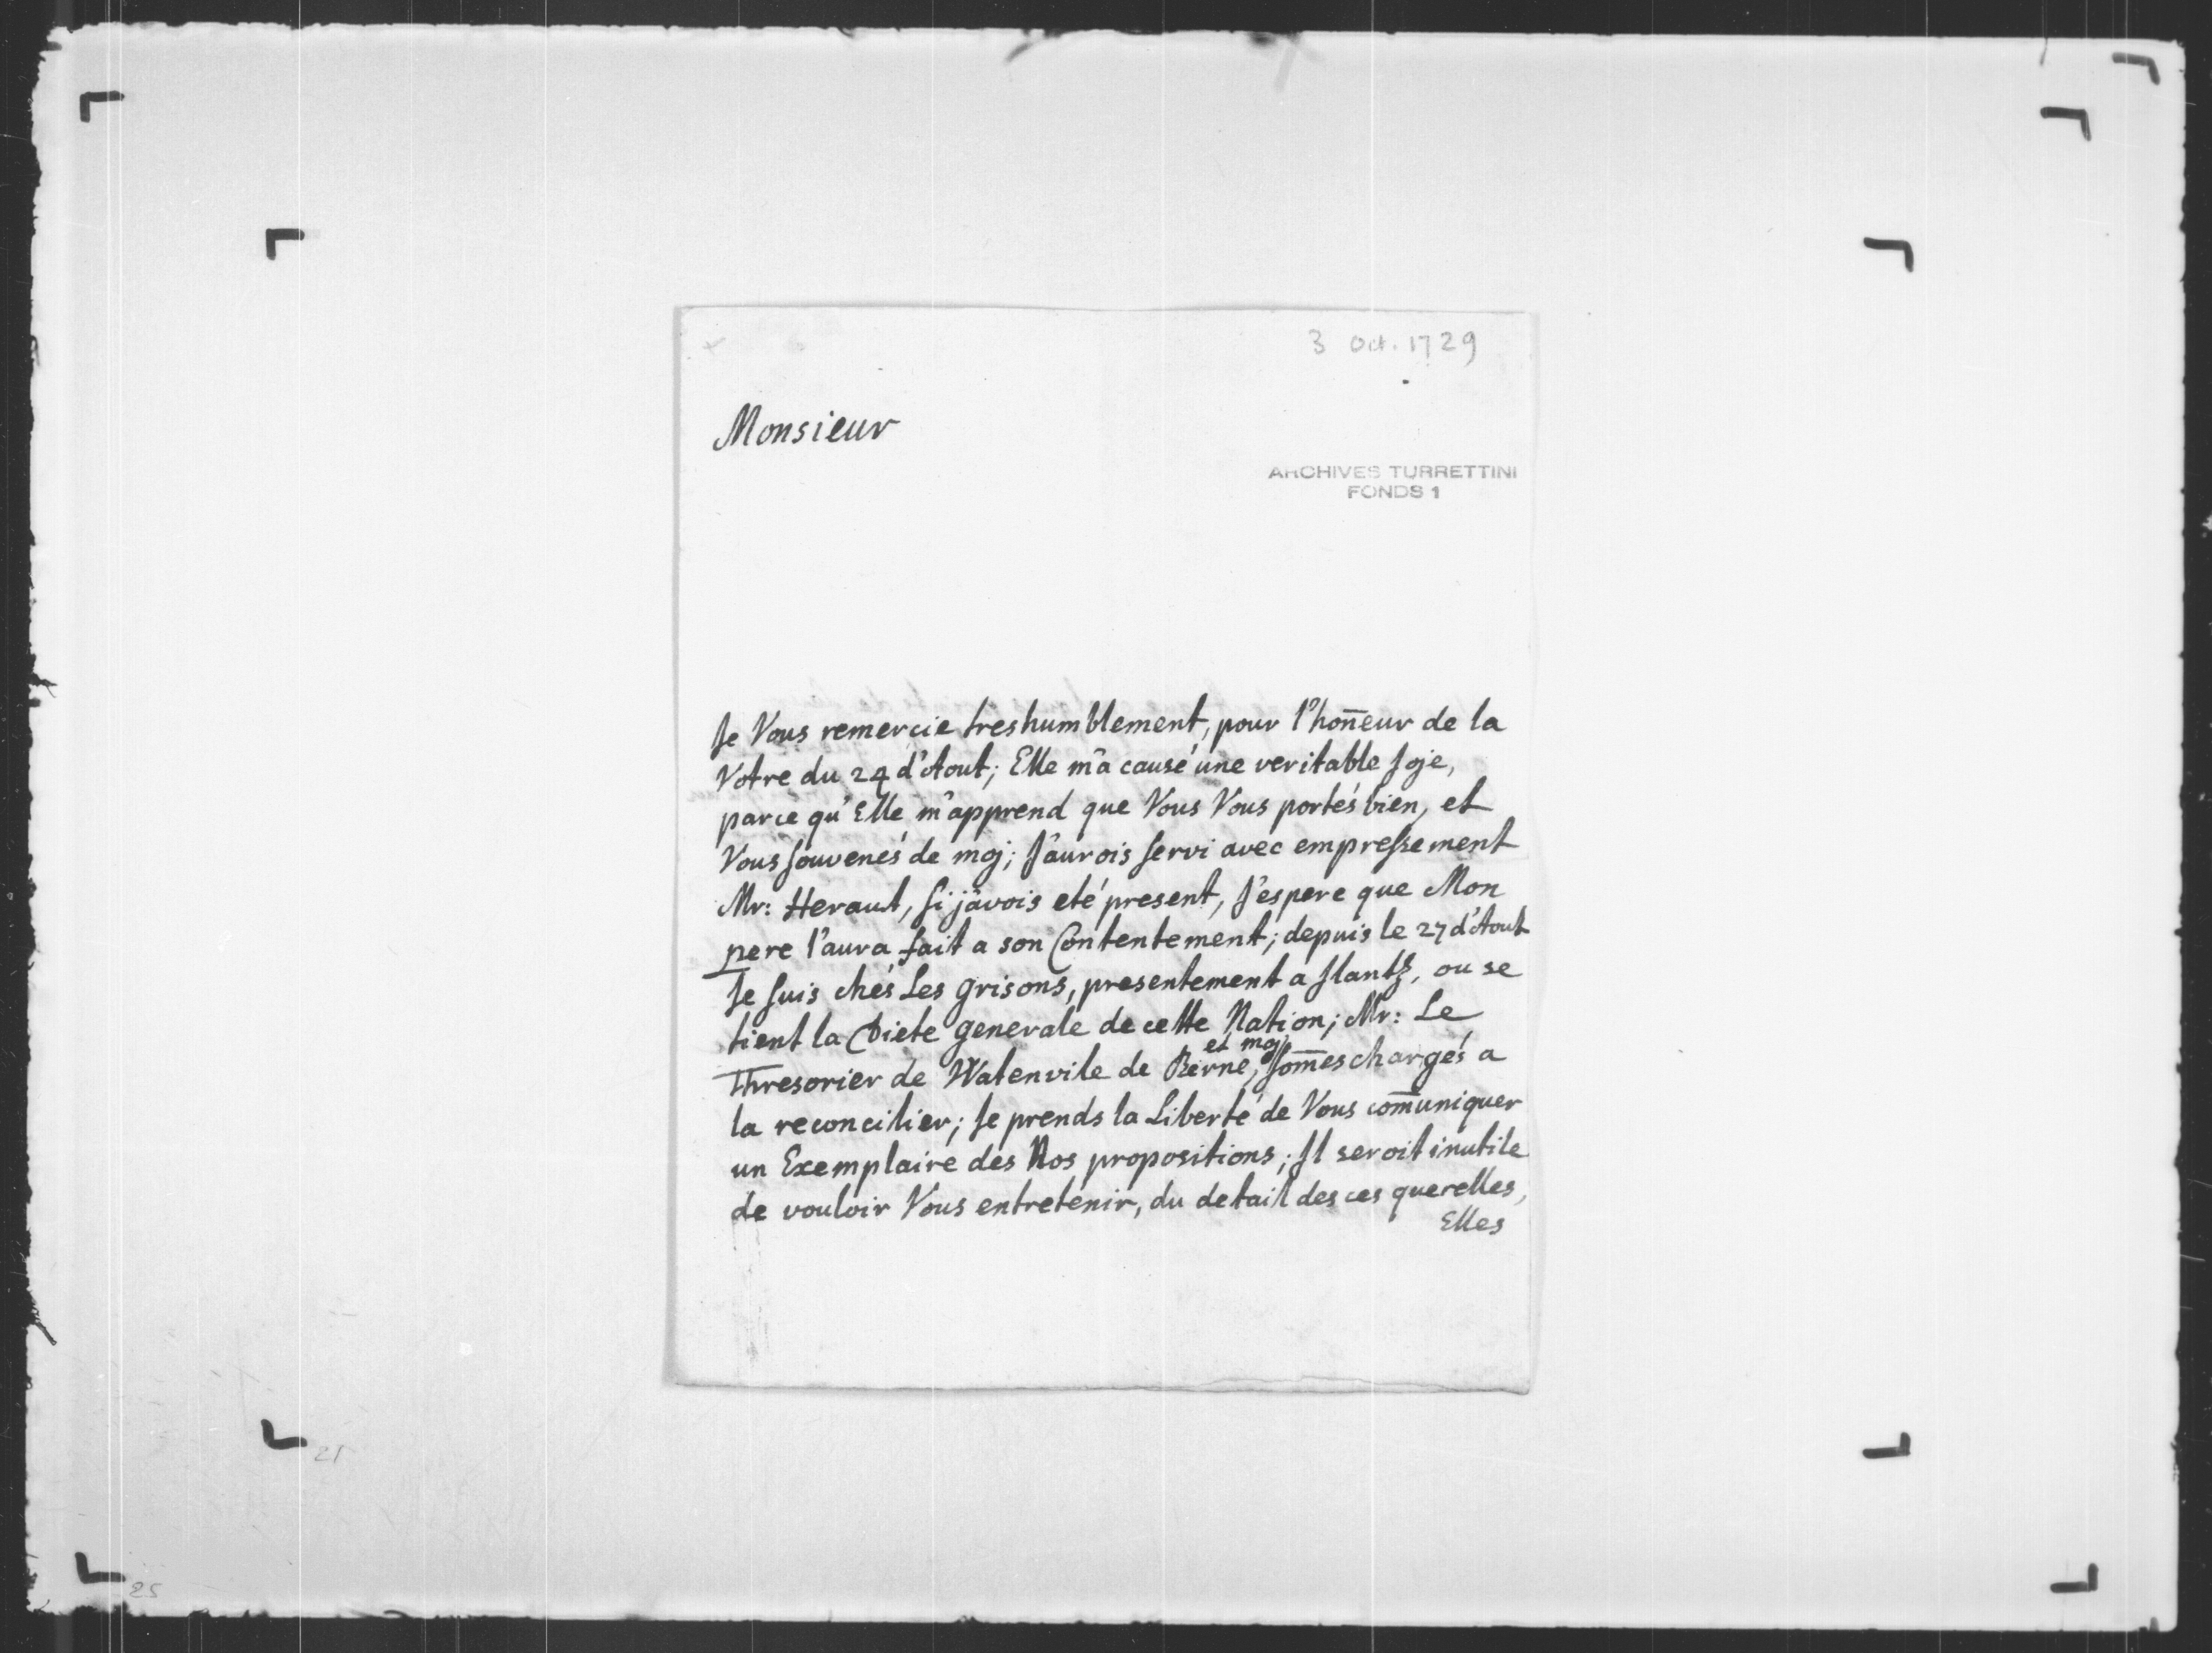 3 Oct. 1729
Monsieur
ARCHIVES TURRETTINI
FONDS 1
Je Vous remercie treshumblement, pour l'hon̄eur de la
Votre du 24 d'Aout; Elle m'a causé une veritable Joje,
parce qu'Elle m'apprend que Vous Vous portés bien, et
Vous souvenés de moj; J'aurois servi avec empressement
Mr: Heraut, si j'avois eté present, J'espere que Mon
pere l'aura fait a son Contentement; depuis le 27 d'Aout
Je suis chés Les Grisons, presentement a Jlantz, ou se
tient la Diete generale de cette Nation; Mr: Le
et moj
Thresorier de Watenvile de Berne, som̄es chargés a
la reconcilier; Je prends la Liberté de Vous com̄uniquer
un Exemplaire des Nos propositions; Jl seroit inutile
de vouloir Vous entretenir, du detail des ces querelles,
Elles
21
25